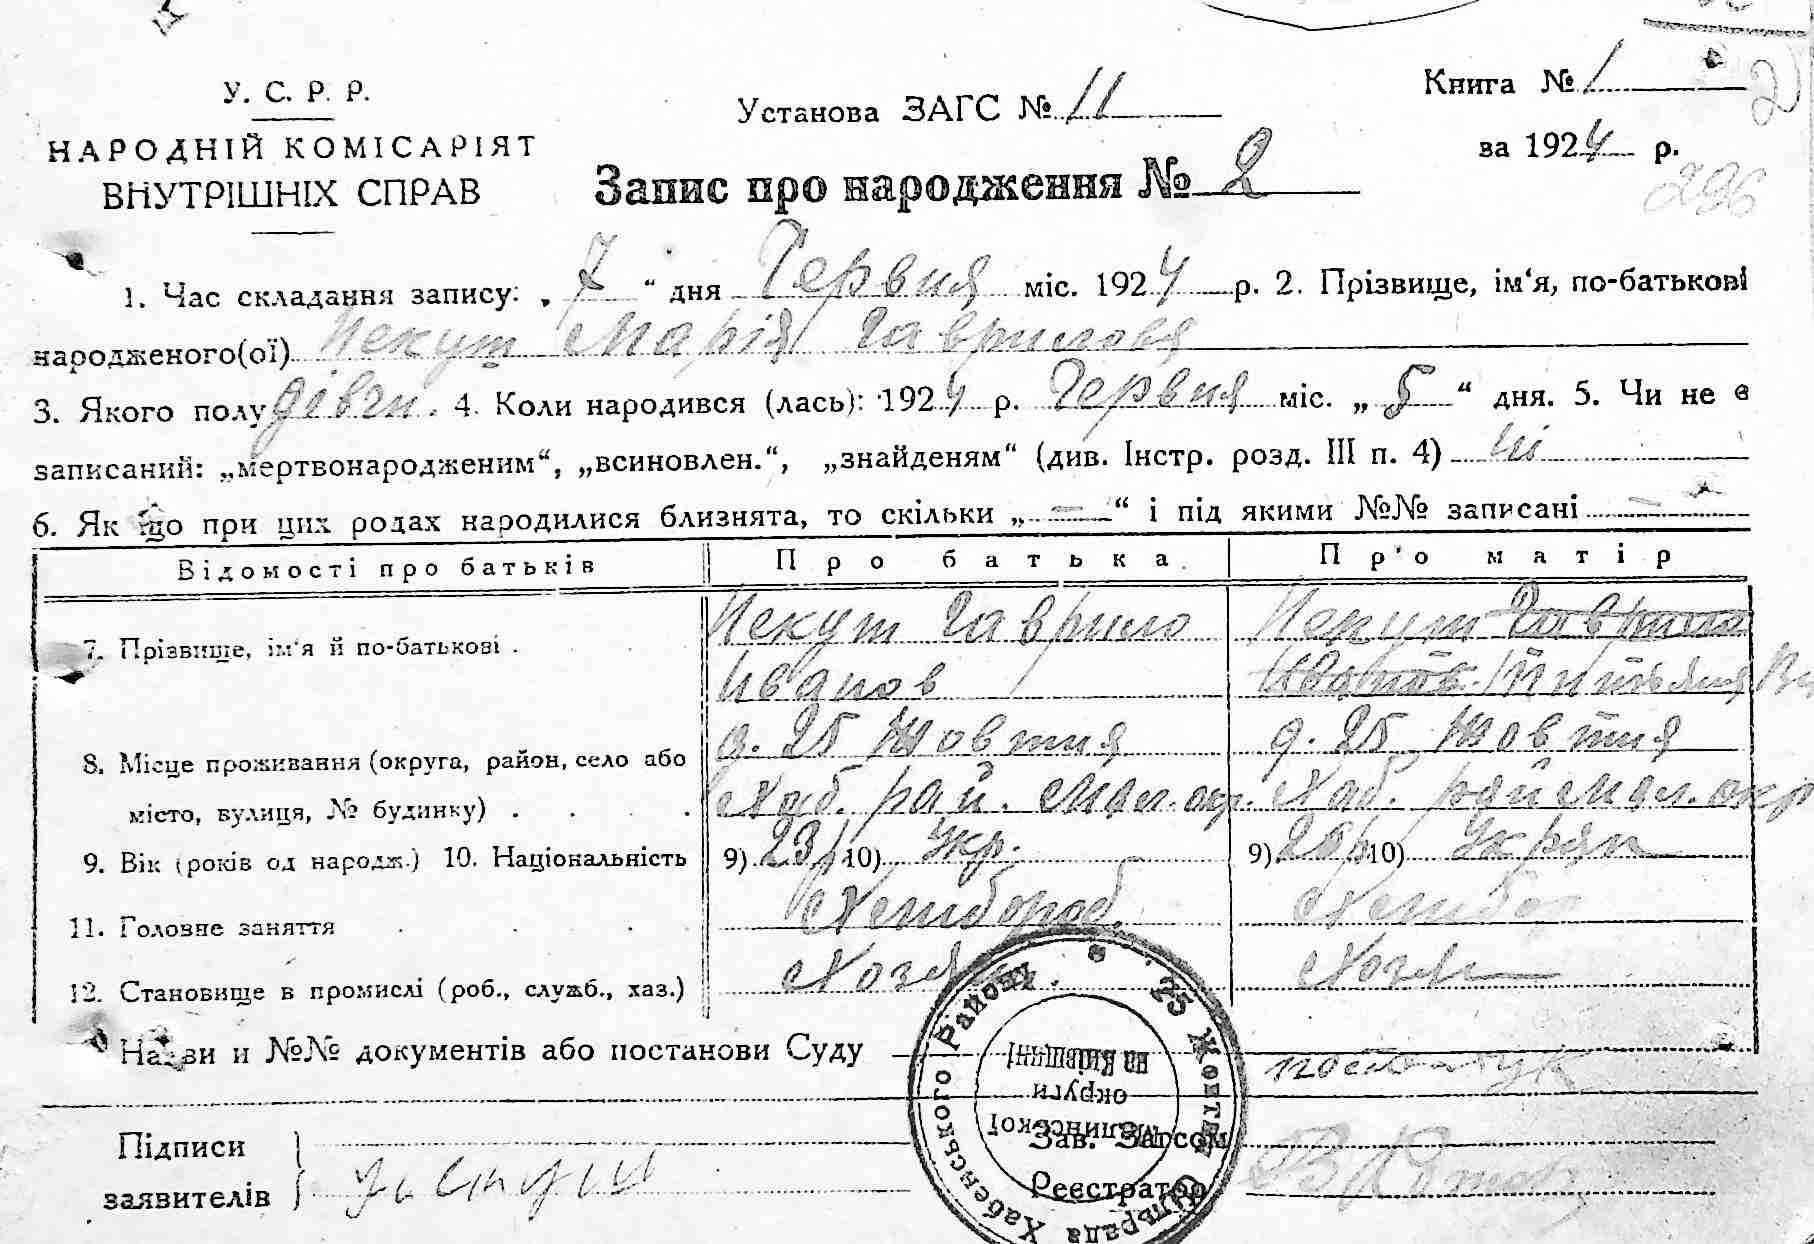 У. С. Р. Р.
НАРОДНІЙ КОМІСАРІЯТ
ВНУТРІШНІХ СПРАВ
Установа ЗАГС № 11
Книга № 1
за 1924 р.
2
296
Запис про народження № 2
1. Час складання запису: „ 7 “ дня Червня міс. 1924 р. 2. Прізвище, ім‘я, по-батькові
народженого(ої) Пекут Марія Гаврилова
3. Якого полу дівч. 4. Коли народився (лась): 1924 р. Червня міс. „ 5 “ дня. 5. Чи не є
записаний: „мертвонародженим“, „всиновлен.“, „знайденям“ (див. Інстр. розд. III п. 4) ні
6. Як що при цих родах народилися близнята, то скільки „ — “ і під якими №№ записані —
Відомості про батьків Про батька. Про матір
7. Прізвище, ім‘я й по-батькові . Пекут Гаврило Пекут Гаврило
Иванов Иванов
8. Місце проживання (округа, район, село або д. 25 Жовтня д. 25 Жовтня
місто, вулиця, № будинку) . . . . Хаб. рай. Мал. окр. Хаб. рай Мал. окр
9. Вік (років од народж.) 10. Національність 9) 23 р 10) Укр. 9) 10)
11. Головне заняття . . . . Хлибороб
12. Становище в промислі (роб., служб., хаз.)
Назви и №№ документів або постанови Суду —
Підписи
заявителів
Зав. Загсом
Реєстратор
25 Жовтня Сільрада Хабенського Району
Малинської
округи
на Київщині